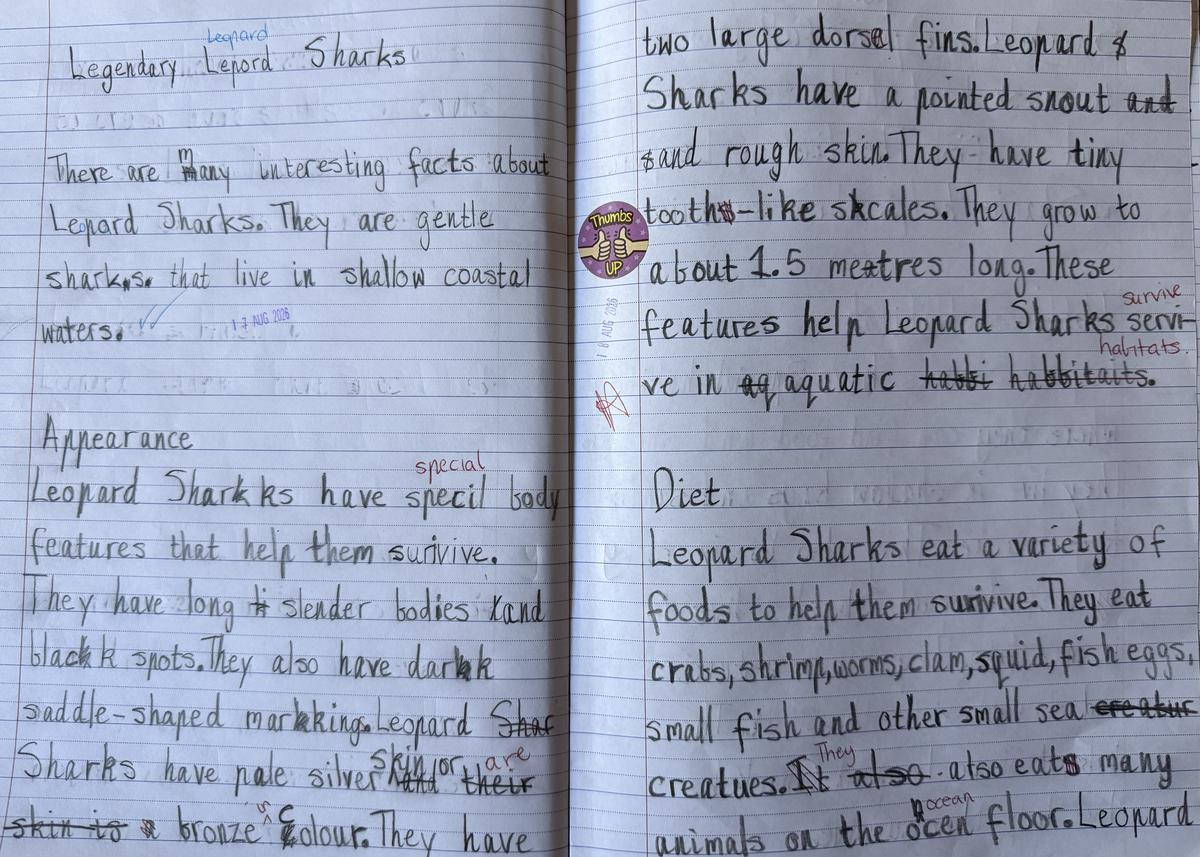 Leopard
Legendary Lepord Sharks
There are many interesting facts about
Leopard Sharks. They are gentle
sharks. that live in shallow coastal
waters.
17 AUG 2026
Appearance
special
Leopard Sharkks have specil body
features that help them surivive.
They have long slender bodies and
blackk spots. They also have dark
saddle-shaped markking. Leopard Shar
skin or are
Sharks have pale silver and their
skin is bronze colour. They have
two large dorsal fins. Leopard s
Sharks have a pointed snout and
and rough skin. They have tiny
tooth-like scales. They grow to
Thumbs
UP
about 1.5 metres long. These
18 AUG 2026
survive
features help Leopard Sharks servi-
habitats.
ve in aq aquatic habbi habbitaits.
Diet
Leopard Sharks eat a variety of
foods to help them surivive. They eat
crabs, shrimp, worms, clam, squid, fish eggs,
small fish and other small sea creatur
They
creatues. It also also eats many
ocean
animals on the ocen floor. Leopard